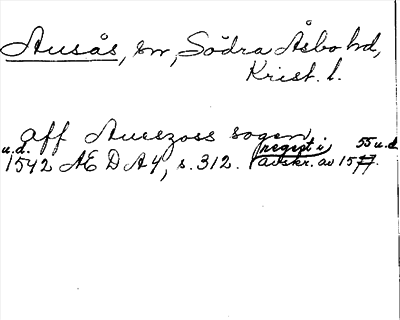 Ausås, sn, Södra Åsbo hd,
Krist. l.
aff Auszoss sogen
u.d. regist i 55 u.d.
1542 ÆDA4, s. 312. avskr. av 1577.